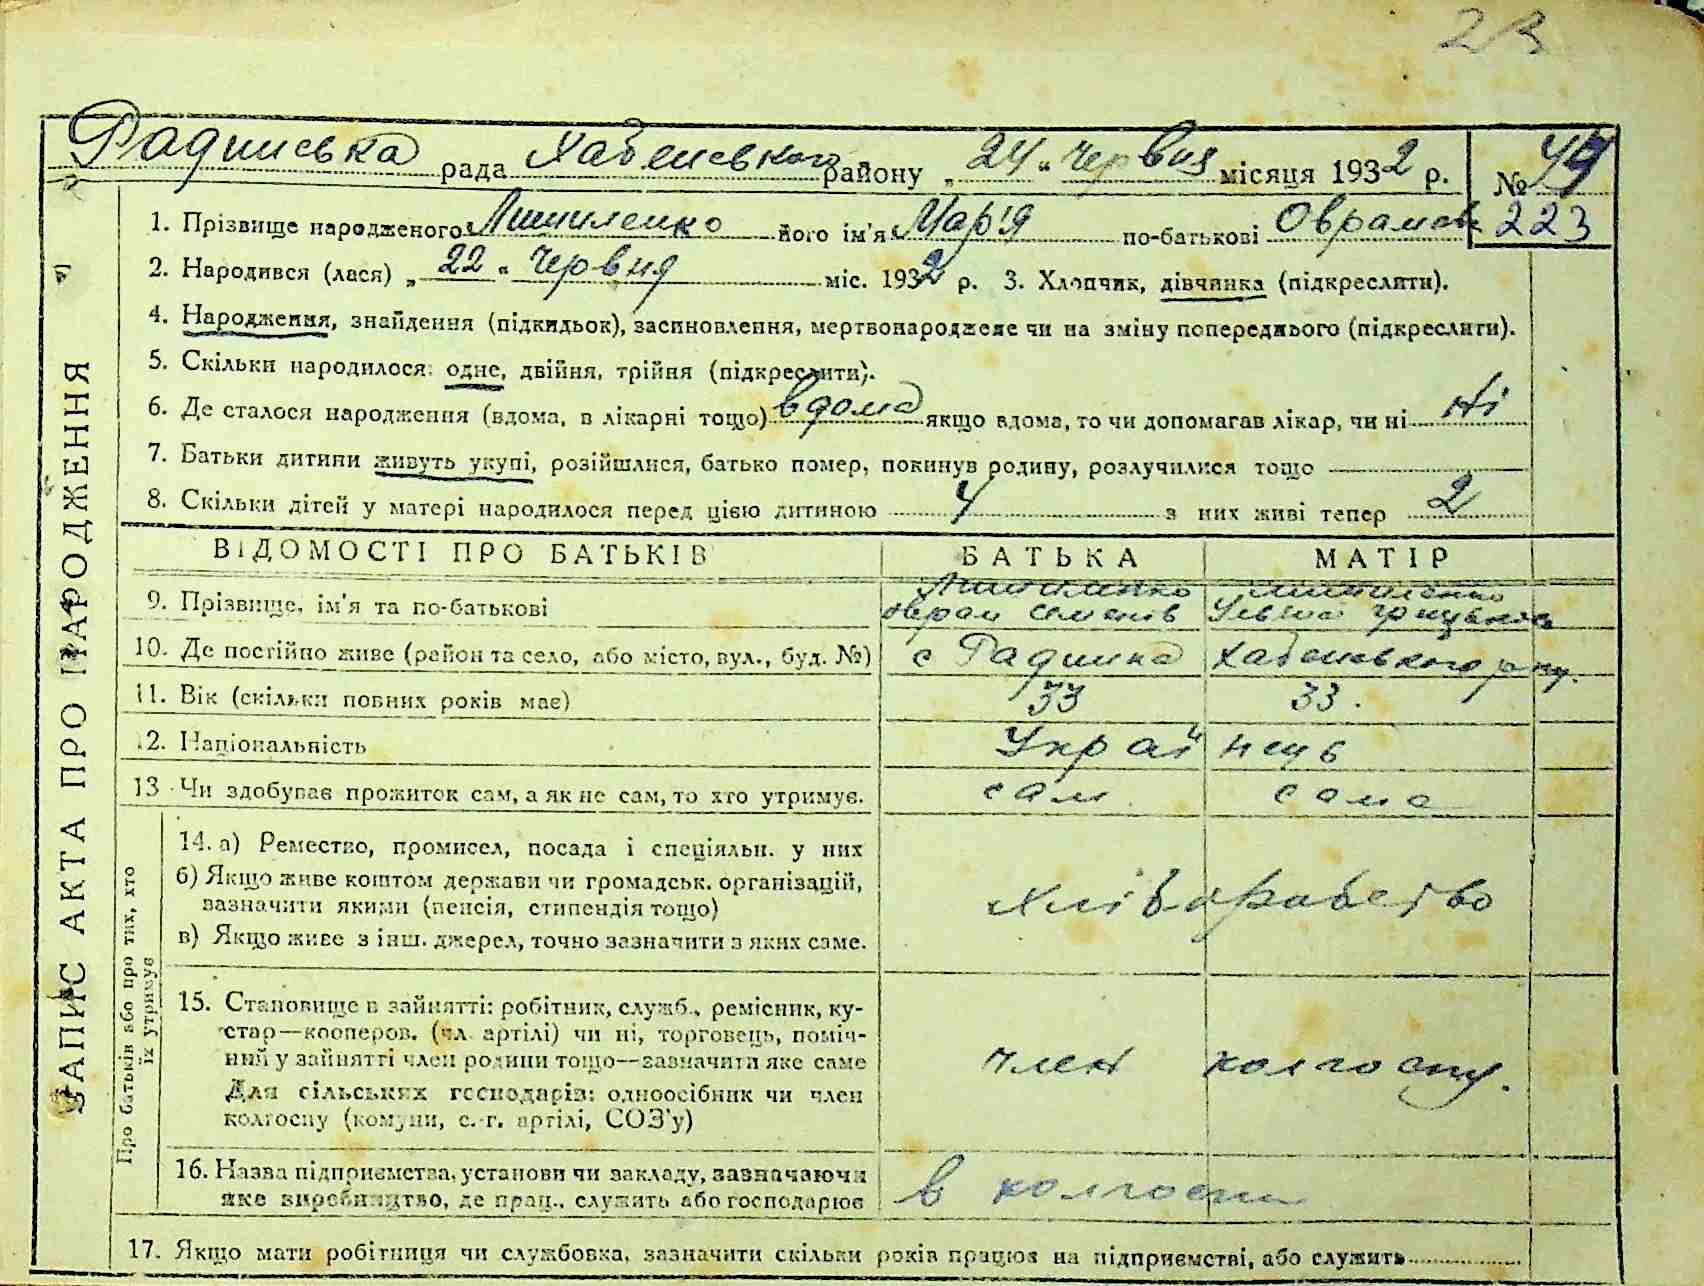 23
Радинська рада Хабенського району „24" червня місяця 1932 р. № 44
223
1. Прізвище народженого його ім'я Марія по-батькові Оврамов
2. Народився (лася) „22" червня міс. 1932 р. 3. Хлопчик, дівчинка (підкреслити).
4. Народження, знайдення (підкидьок), засиновлення, мертвонароджене чи на зміну попереднього (підкреслити).
5. Скільки народилося: одне, двійня, трійня (підкреслити).
6. Де сталося народження (вдома, в лікарні тощо) вдома якщо вдома, то чи допомагав лікар, чи ні Ні
7. Батьки дитини живуть укупі, розійшлися, батько помер, покинув родину, розлучилися тощо
8. Скільки дітей у матері народилося перед цією дитиною 4 з них живі тепер 2
ЗАПИС АКТА ПРО НАРОДЖЕННЯ
ВІДОМОСТІ ПРО БАТЬКІВ БАТЬКА МАТІР
9. Прізвище, ім'я та по-батькові Оврам Семенів
10. Де постійно живе (район та село, або місто, вул., буд. №) с Радинка Хабенського р-ну.
11. Вік (скільки повних років має) 33 33.
12. Національність Українців
13. Чи здобуває прожиток сам, а як не сам, то хто утримує. сам сама
Про батьків або про тих, хто
їх утримує
14. а) Ремество, промисел, посада і спеціяльн. у них
б) Якщо живе коштом держави чи громадськ. організацій,
зазначити якими (пенсія, стипендія тощо) Хліборобство
в) Якщо живе з інш. джерел, точно зазначити з яких саме.
15. Становище в зайнятті: робітник, служб., ремісник, ку-
стар—кооперов. (чл. артілі) чи ні, торговець, поміч-
ний у зайнятті член родини тощо—зазначити яке саме член колгоспу.
Для сільських господарів: одноосібник чи член
колгоспу (комуни, с.-г. артілі, СОЗ'у)
16. Назва підприємства, установи чи закладу, зазначаючи
яке виробництво, де прац., служить або господарює в колгоспі
17. Якщо мати робітниця чи службовка, зазначити скільки років працює на підприємстві, або служить